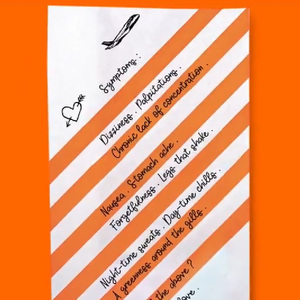 Symptoms .
Dizziness . Palpitations .
Chronic lack of concentration .
Nausea . Stomach ache .
Forgetfulness . Legs that shake .
Night-time sweats . Day-time chills .
A greenness around the gills .
the above ?